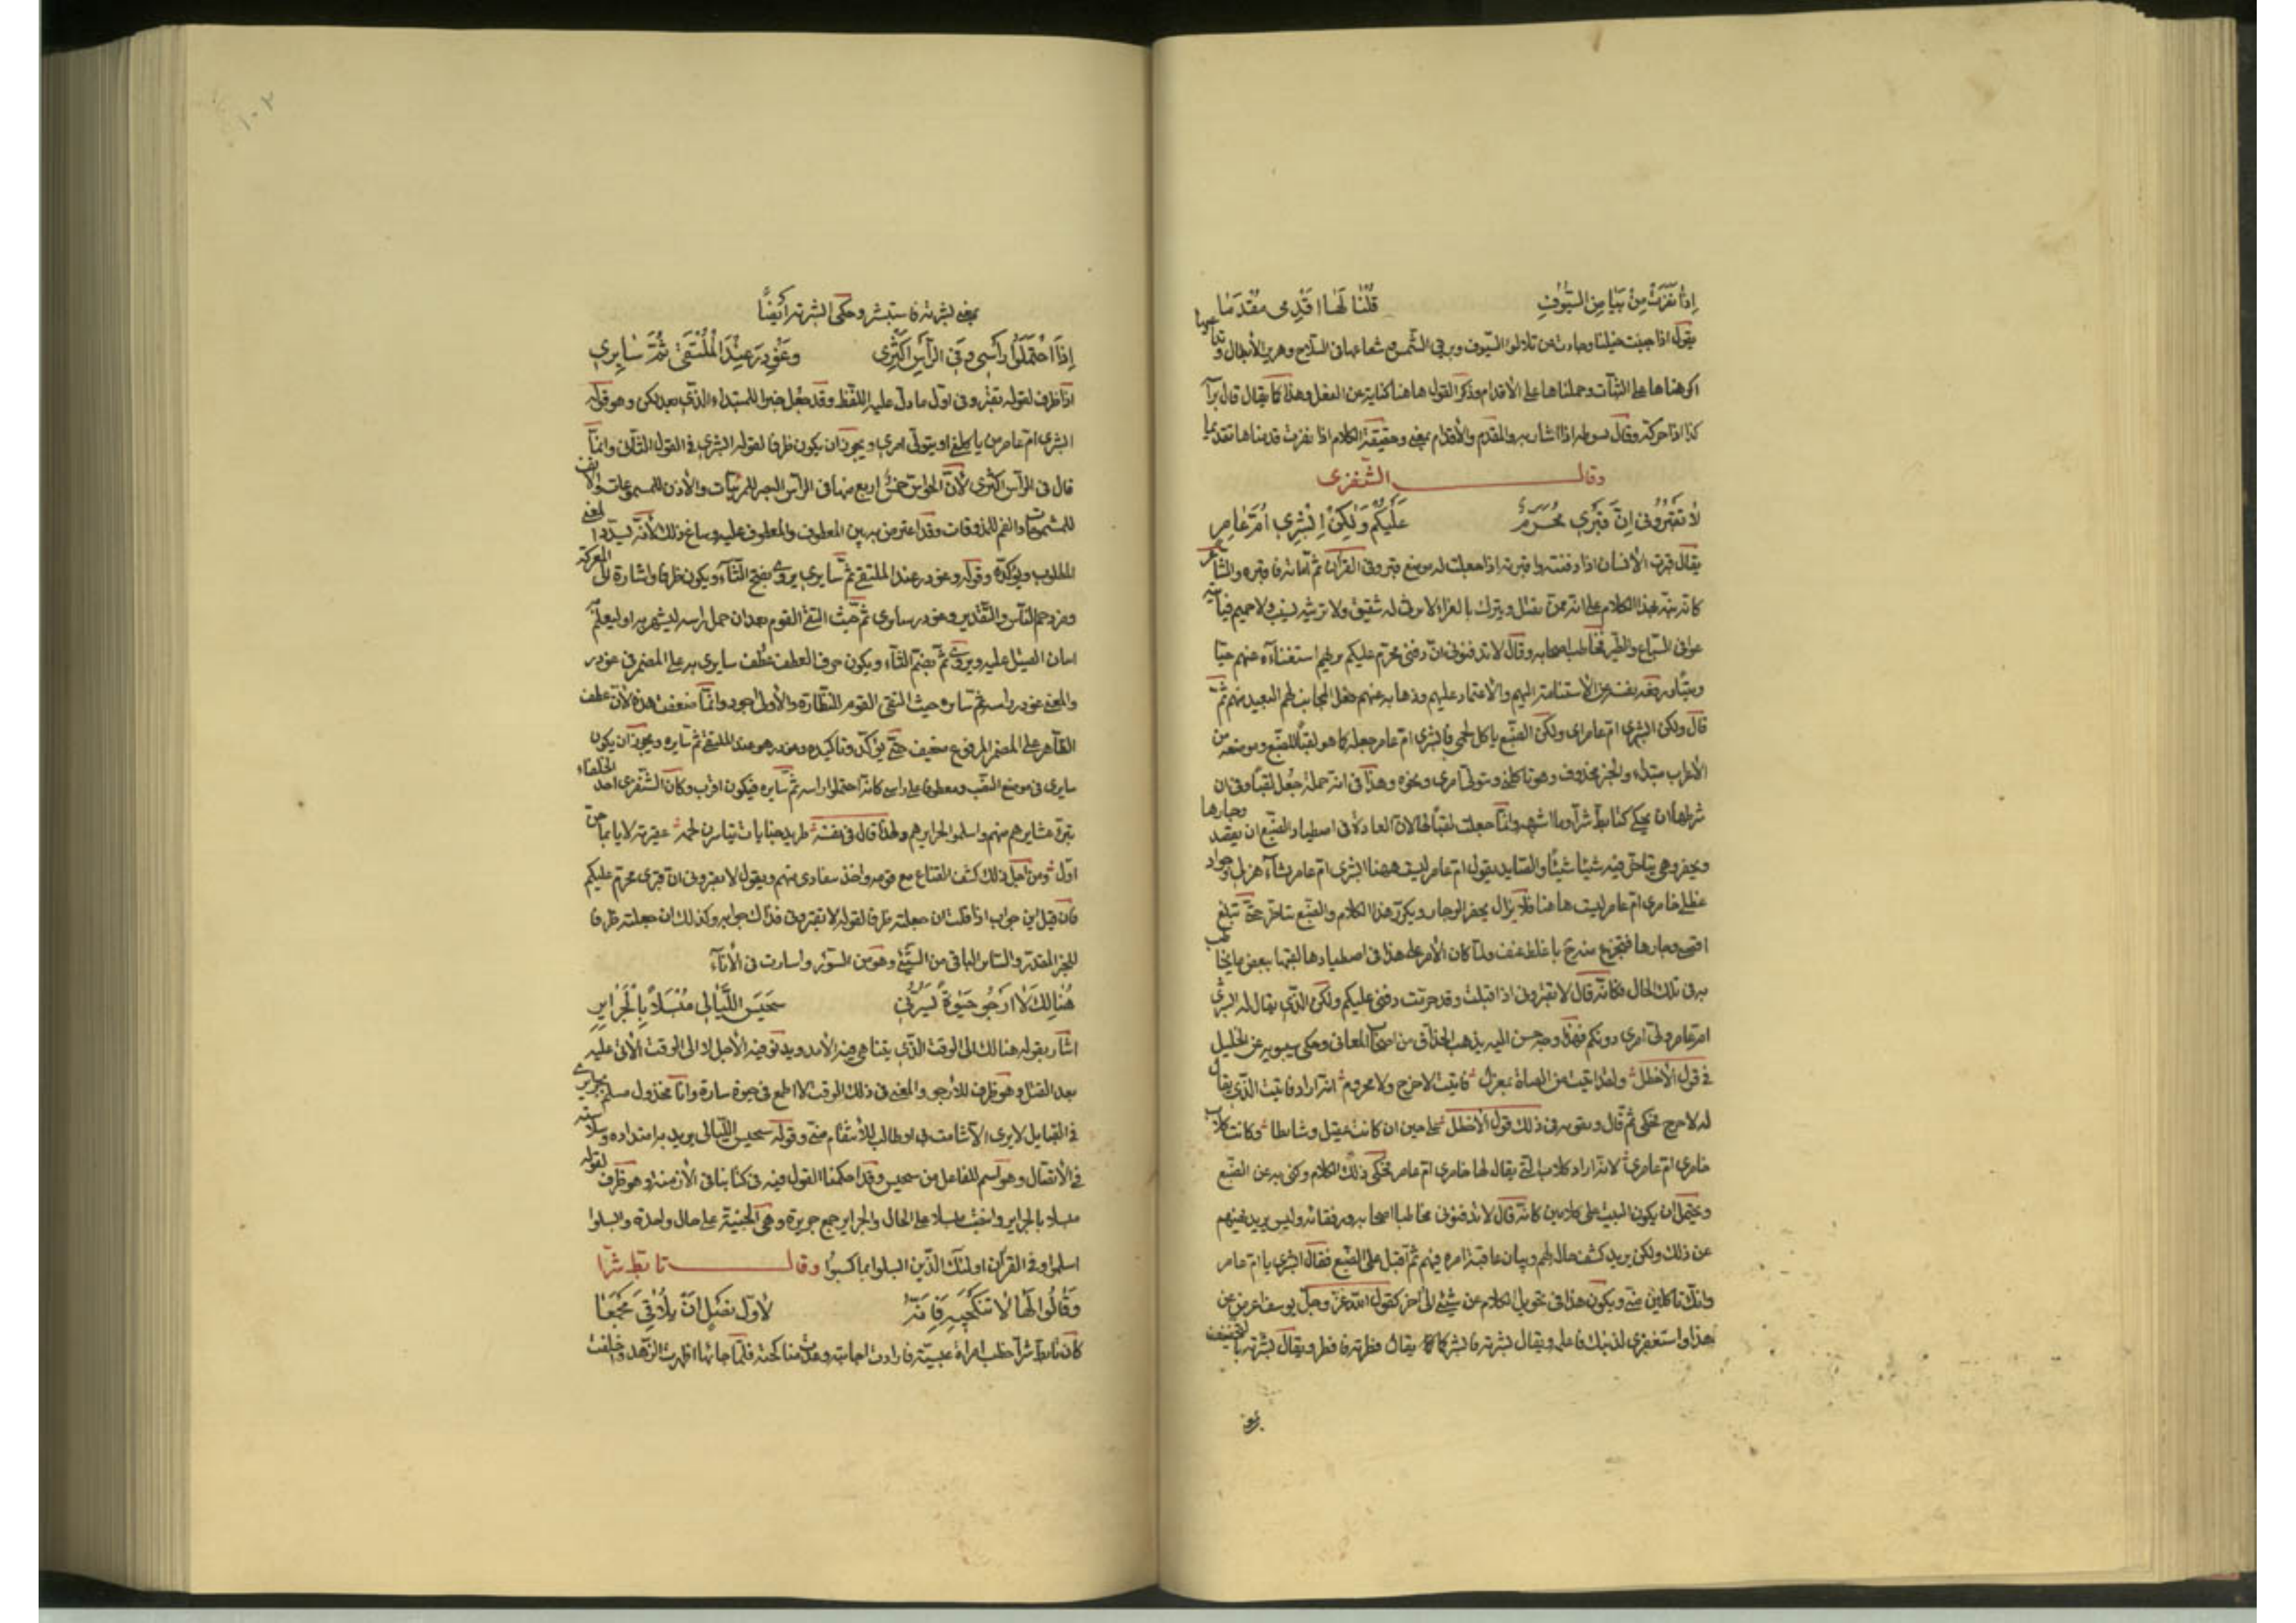 إِذَا نَفَرَتْ مِنْ بَيَاضِ السُّيُوفِ قُلْنَا لَهَا اقْدِمِي مَقْدَمَا
يقول اذا جبنت خيلنا وحادت من تلالؤ السيوف وبرق الشمس شعاعها في السلاح وهرير الأبطال و
اكرهناها على الثبات وحملناها على الأقدام وذكر القول هاهنا كناية عن الفعل وهذا كما يقال قال برأسه
كذا اذا حركه وقال بسوطه اذا اشار به والمقدم والأقدام بمعنى وحقيقة الكلام اذا نفرت قدمناها تقديما
وقال الشنفرى
لَا تَقْبُرُونِي اِنَّ قَبْرِي مُحَرَّمٌ عَلَيْكُمْ وَلٰكِنْ اِبْشِرِي اُمَّ عَامِرِ
يقال قبرت الأنسان اذا دفنته واقبرته اذا جعلت له موضع قبر وفي القرآن ثم أماته فاقبره والشاعر
كانه نبه بهذا الكلام على انه ممن يقتل ويترك بالعراء لا يرق له شقيق ولا يرثيه نسيب ولا حميم
عوافي السباع والطير فخاطب اصحابه وقال لا تدفنوني ان دفني محرم عليكم يريهم استغناءه عنهم حيا
وميتا نفسه عن الأستنامة اليهم والاعتماد عليهم وذهابه عنهم فعل المجانب لهم البعيد منهم ثم
قال ولكن ابشري ام عامر اي ولكن الضبع ياكل لحمي فابشري ام عامر جعله كما هو لقبا للضبع وموضعه من
الأعراب مبتداء والخبر محذوف وهو تاكلني وتتولى امري ونحوه وهذا في انه جملة جعل لقبا وفي ان
شرطها ان يحكى كتأبط شرا وما اشبهه وانما جعلت لقبا لها لان العادة في اصطياد الضبع ان يقصد وجارها
ويحفر وهي تتاخر فيه شيئا شيئا والصايد يقول ام عامر ليست ههنا ابشري ام عامر بشاء هزلى وجراد
عظلى خامري ام عامر ليست هاهنا فلا يزال يحفر الوجار ويكرر هذا الكلام والضبع تتاخر حتى تبلغ
اقصى وجارها فتخرج باغلظ عنف ولما كان الأمر على هذا في اصطيادها لقبها ببعض ما يخاطب
به في تلك الحال فكانه قال لا تقبروني اذا قتلت وقد حرمت دفني عليكم ولكن الذي يقال له ابشري
ام عامر ولي امري دونكم فهذا وجه حسن اليه يذهب الحذاق من اصحاب المعاني وحكى سيبويه عن الخليل
في قول الأخطل ولقد ابيت من الفتاة بمنزل فابيت لا حرج ولا محروم انه اراد فابيت الذي يقال
له لا حرج فحكى ثم قال ويقويه في ذلك قول الأخطل على حين ان كانت عقيل وشايظا وكانت كلاب
خامري ام عامر لانه اراد كلاب التي يقال لها خامري ام عامر فحكى ذلك الكلام وكنى به عن الضبع
ويحتمل ان يكون البيت على كلامين كانه قال لا تدفنوني مخاطبا اصحابه ورفقائه وليس يريد نهيهم
عن ذلك ولكن يريد كشف حاله لهم وبيان عاقبة امره فيهم ثم اقبل على الضبع فقال ابشري يا ام عامر
وانك تاكلين مني ويكون هذا في تحويل الكلام عن شيئ الى آخر كقول الله عز وجل يوسف اعرض عن
هذا واستغفري لذنبك فاعلم ويقال بشرته فابشر كما يقال فطرته فافطر ويقال بشرته بالتخفيف
بمعنى
بمعنى بشرته فاستبشر وحكى ابشرته أيضًا
إِذَا احْتَمَلُوا رَأْسِي وَفِي الرَّأْسِ اَكْثَرِي وَغُودِرَ عِنْدَ الْمُلْتَقَى ثُمَّ سَايِرِي
اذا ظرف لقوله تقبروني اول ما دل عليه اللفظ وقد جعل خبرا للمبتداء الذي بعد لكن وهو قوله
ابشري ام عامر من ياكلني او يتولى امري ويجوز ان يكون ظرفا لقوله ابشري في القول الثاني وانما
قال في الرأس اكثري لأن الحواس خمس اربع منها في الراس البصر للمرئيات والأذن للمسموعات والانف
للمشمومات والفم للمذوقات وقد اعترض به بين المعطوف والمعطوف عليه وساغ ذلك لانه يسدد المعنى
المطلوب ويؤكده وقوله وغودر عند الملتقى ثم سايري يروى بفتح الثاء ويكون ظرفا واشارة الى المعركة
ومزدحم الناس والتقدير وغودر سايري ثم حيث التقى القوم بعد ان حمل راسه ليشهر به او ليعلم
القتيل عليه ويروى ثم بضم الثاء ويكون حرف العطف عطف سايري به على المضمر في غودر
والمعنى غودر راسه ثم سايره حيث التقى القوم للنظارة والأول اجود وانما ضعف هذه لأن عطف
الظاهر على المضمر المرفوع ضعيف حتى يؤكد وتاكيده وغودر هو عند الملتقى ثم سايره ويجوز ان يكون
سايري في موضع النصب ومعطوفا على راسي كانه احتملوا راسه ثم سايره فيكون اقرب وكان الشنفرى احد الخلعاء
تبرء عشايرهم منهم واسلموا لجرايرهم ولهذا قال في نفسه طريد جنايات تياسرن لحمه عقيرته لايا بها حم
اول ومن اجل ذلك كشف القناع مع قومه واخذ منهم ويقول لا تقبروني ان قبري محرم عليكم
فان قيل اين جواب اذا قلت ان جعلته ظرفا لقوله لا تقبروني فذاك جوابه وكذلك ان جعلته ظرفا
للخبر المقدر والساير الباقي من الشيئ وهو من السؤر واسارت في الأناء
هُنَالِكَ لَا اَرْجُو حَيٰوةً تَسُرُّنِي سَجَيسَ اللَّيَالِي مُبْسَلًا بِالْجَرَايِرِ
اشار بقوله هنالك الى الوقت الذي يتناهى فيه الأمد ويدنو فيه الأجل او الى الوقت الآتي عليه
بعد القتل وهو ظرف للارجو والمعنى في ذلك الوقت لا اطمع في حيوة سارة وانا مخذول مسلم بجرايري
في القبايل لا يرى الا شامت بي او طالب للأنتقام مني وقوله سجيس الليالي يريد به امتداده وسلاسته
في الأتصال وهو اسم للفاعل من سجيس وقد احكمنا القول فيه في كتابنا في الأزمنة وهو ظرف لقوله
مبسلا بالجراير وانتصب مبسلا على الحال والجراير جمع جريرة وهي الجناية على حال واحدة وابسلوا
اسلموا وفي القرآن اولئك الذين ابسلوا بما كسبوا وقال تابط شرا
وَقَالُوا لَهَا لَا تَنْكَحِيهِ فَاِنَّهُ لِاَوَّلِ نَصْلٍ اَنْ يُلَاقِيَ مَجْمَعَا
كان تابط شرا خطب امراة عبسية فارادت اجابته ووعدته مناكحته فلما جائها اظهرت الزهد واخلفت